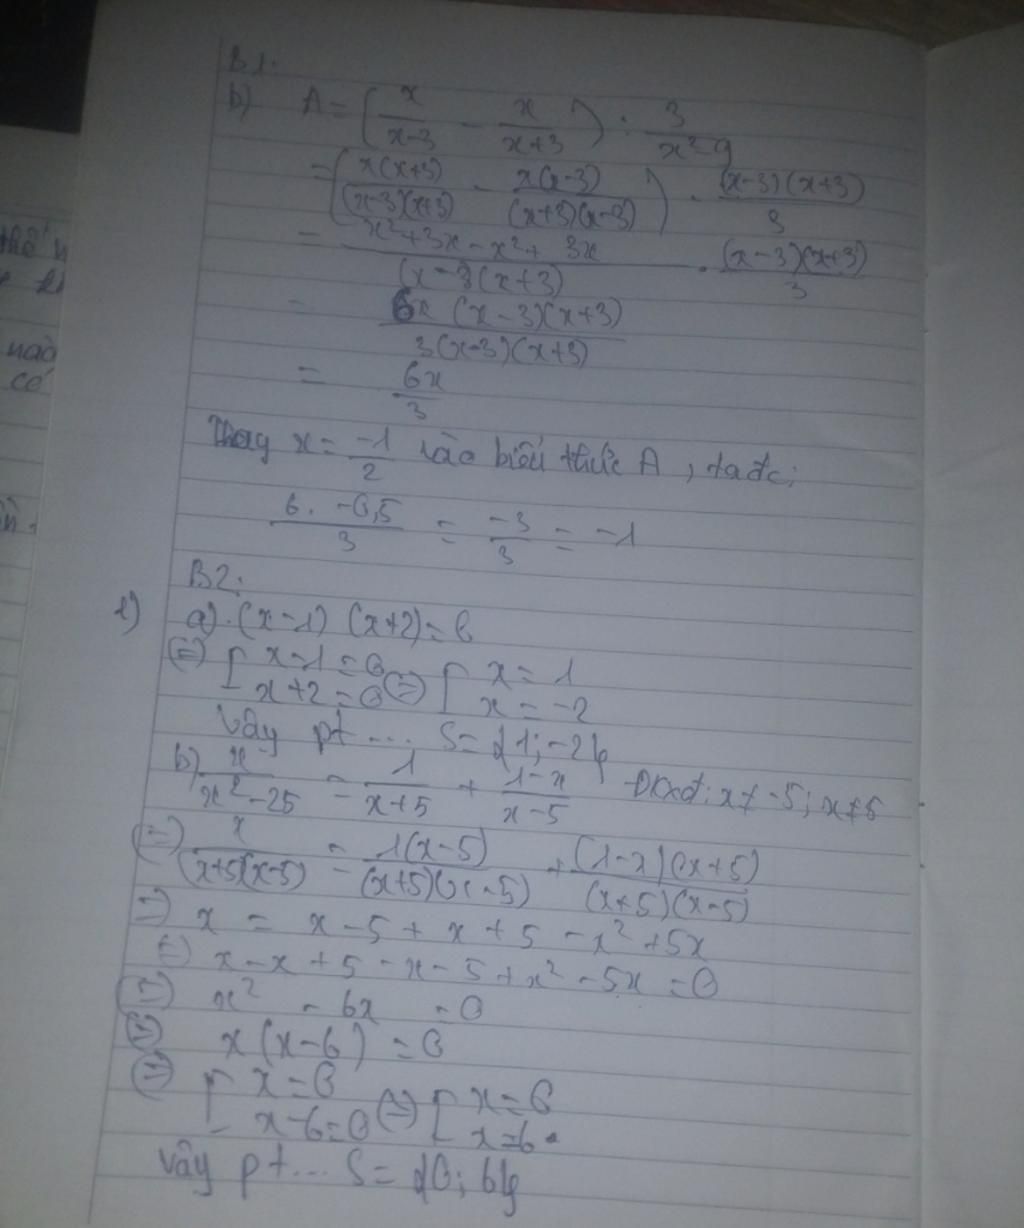 B1.
b) A = (x/(x-3) - x/(x+3)) : 3/(x²-9)
= (x(x+3)/((x-3)(x+3)) - x(x-3)/((x+3)(x-3))) . (x-3)(x+3)/3
= (x²+3x-x²+3x)/((x-3(x+3)) . (x-3)(x+3)/3
= 6x(x-3)(x+3)/(3(x-3)(x+3))
= 6x/3
Thay x = -1/2 vào biểu thức A, ta đc:
(6. -0,5)/3 = -3/3 = -1
B2:
1) a). (x-1)(x+2)=0
(=) [ x-1=0 (=) [ x = 1
x+2=0 x = -2
Vậy pt ... S={1;-2}
b) x/(x²-25) = 1/(x+5) + (1-x)/(x-5) ĐKXĐ: x≠-5; x≠5
(=) x/((x+5)(x-5)) = 1(x-5)/((x+5)(x-5)) + (1-x)(x+5)/((x+5)(x-5))
=) x = x-5+x+5-x²+5x
(=) x-x+5-x-5+x²-5x=0
(=) x² - 6x = 0
(=) x(x-6) = 0
(=) [ x=0 (=) [ x=0
x-6=0 x=6.
Vậy pt... S={0;6}